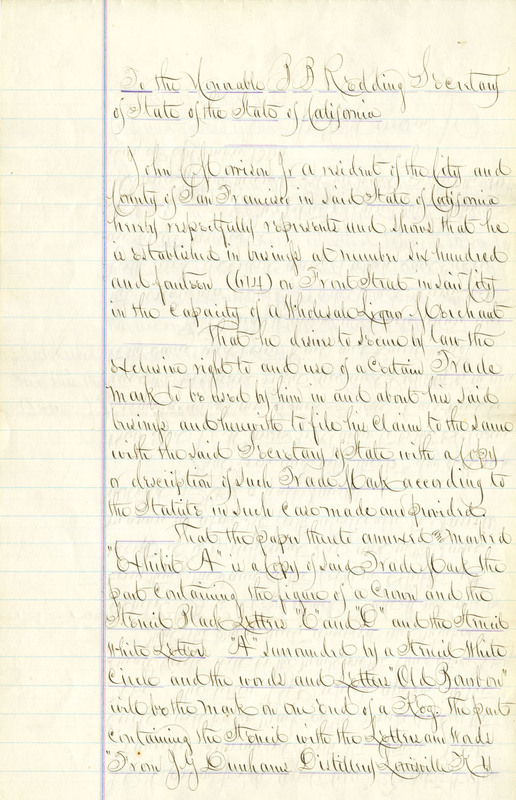 To the Honorable B B Redding Secretary
of State of the State of California
John C Morrison Jr a resident of the City and
County of San Francisco in said State of California
hereby respectfully represents and shows that he
is established in business at number six hundred
and fourteen (614) on Front Street in said City
in the Capacity of a Wholesale Liquor Merchant
That he desires to secure by law the
exclusive right to and use of a certain Trade
Mark to be used by him in and about his said
business and herewith to file his Claim to the same
with the said Secretary of State with a Copy
or description of such Trade Mark according to
the Statute in such Case made and provided.
That the paper thereto annexed marked
"Exhibit A" is a Copy of said Trade Mark the
part containing the figure of a Crown and the
Stencil Black Letters "C" and "C" and the Stencil
White Letter "A" surrounded by a Stencil White
Circle and the words and Letters "Old Bourbon"
will be the mark on one end of a Keg. The part
containing the Stencil with the Letters and Words
"From J. G. Dunhams Distillery Louisville Ky